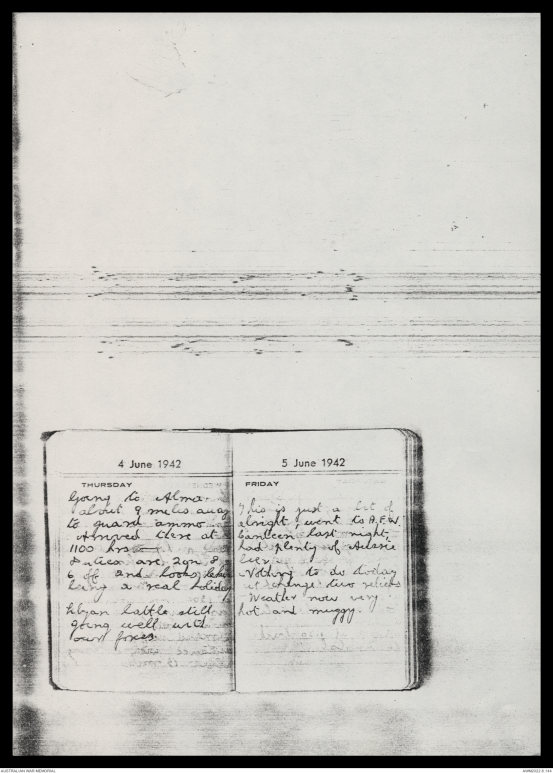 4 June 1942
THURSDAY
Going to Alma
about 9 miles away
to guard ammo
Arrived there at
1100 hrs
Duties are 2 on &
6 off and looks like
being a real holiday
Libyan battle still
going well with
own forces
5 June 1942
FRIDAY
This is just a bit of
alright, went to A.F.W.
Canteen last night,
had plenty of Aussie
beer
Nothing to do today
but change two reliefs
Weather now very
hot and muggy.
AUSTRALIAN WAR MEMORIAL